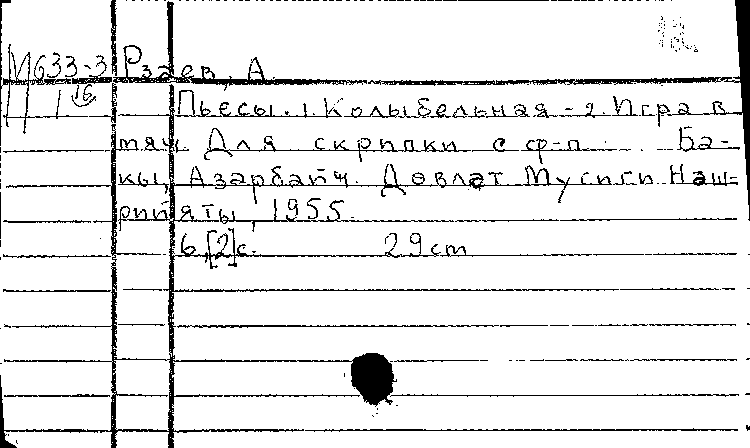 12
М633-3 Рзаев, А.
16
Пьесы. 1. Колыбельная - 2. Игра в
мяч. Для скрипки с ф-п. Ба-
кы, Азәрбайҹ. Дөвләт Мусиги Нәш-
риййяты, 1955.
6,[2]с. 29cm